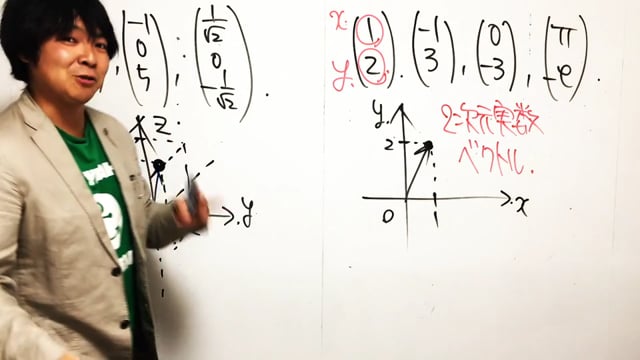 -1
0
5
,
1/√2
0
-1/√2
.
x. y. (1 2). (-1 3), (0 -3), (π -e).
z
y
y
2
0
1
x
2次元実数
ベクトル.